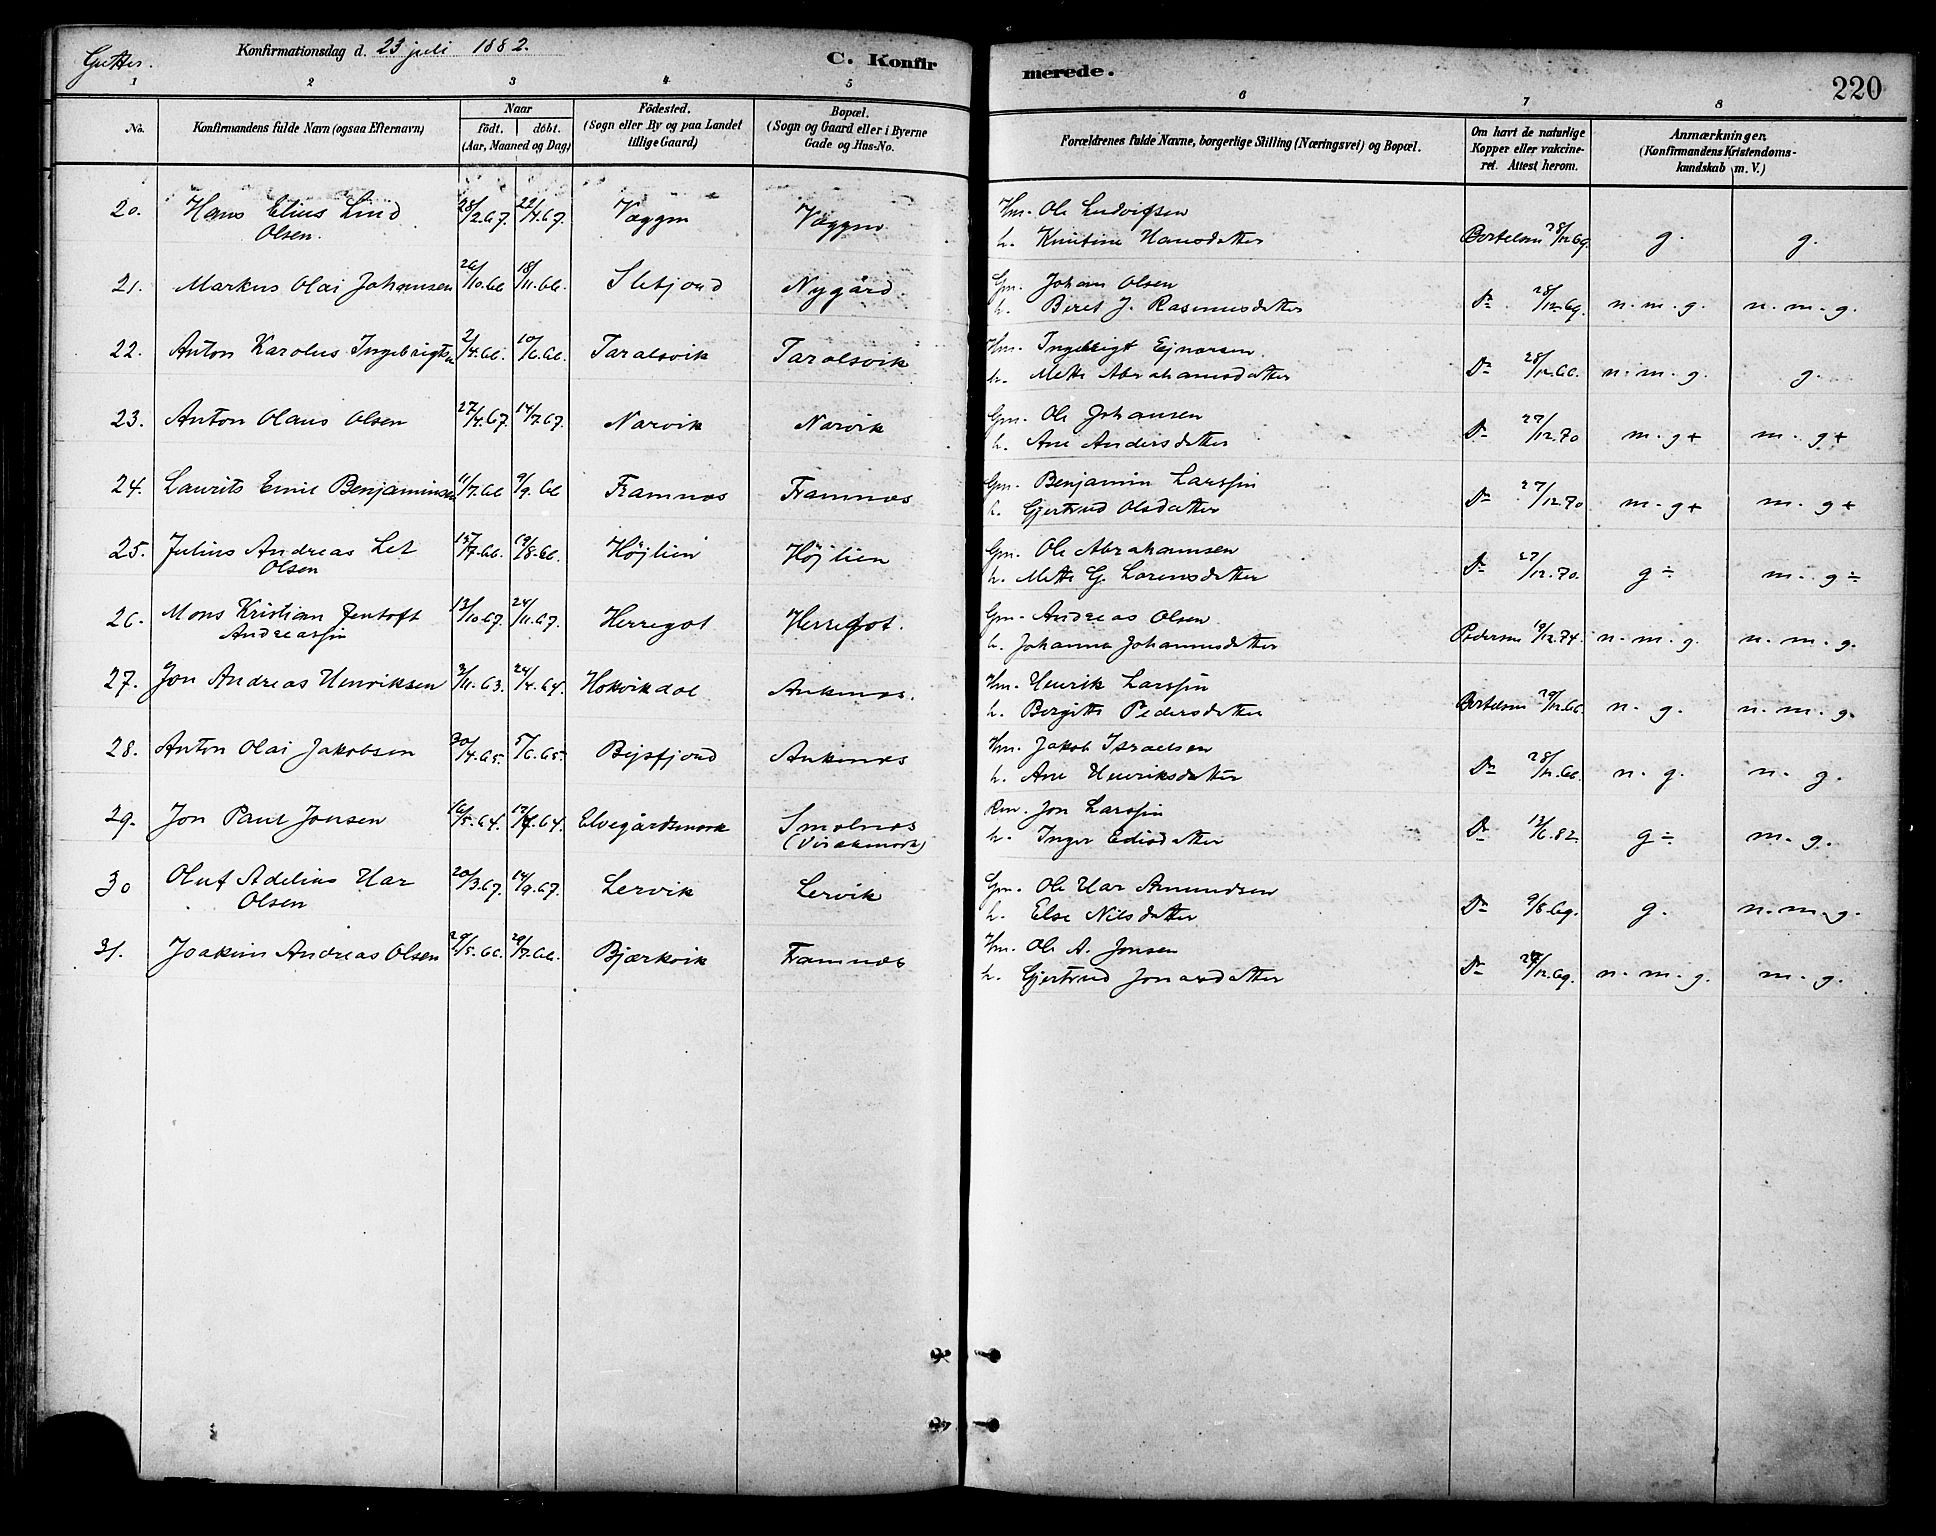 Gutter. Konfirmationsdag d. 23 juli 1882. C. Konfirmerede. 220
1 2 3 4 5 6 7 8
No. Konfirmandens fulde Navn (ogsaa Efternavn) Naar født. døbt. (Aar, Maaned og Dag) Fødested. (Sogn eller By og paa Landet tillige Gaard) Bopæl. (Sogn og Gaard eller i Byerne Gade og Hus-No. Forældrenes fulde Navne, borgerlige Stilling (Næringsvei) og Bopæl. Om havt de naturlige Kopper eller vakcineret. Attest herom. Anmærkninger. (Konfirmandens Kristendomskundskab m. V.)
20. Hans Elius Lind 28/2.67. 22/4.67. Væggen Væggen Hm. Ole Ludvigsen
Olsen. h. Hansdatter Bertelsen 28/12.69. g. g.
21. Markus Olai Johansen 26/10.66 18/11.66. Nygård Gm. Johan Olsen
h. Beret J. Rasmusdatter Do 28/12.69. n. m. g. n. m. g.
22. Anton Karolus Ingebrigtsen 2/4.66. 10/6.66. Taralsvik Taralsvik Hm. Ingebrigt Ejnarsen
h. Mette Abrahamsdatter Do 28/12.66. n. m. g. g.
23. Anton Olaus Olsen 27/4.67. 14/7.67. Narvik Narvik Gm. Ole Johansen
h. Ane Andersdatter Do 27/12.70 m. g + m. g +
24. Laurits Emil Benjaminsen 11/7.66 9/9.66 Framnæs Framnæs Gm. Benjamin Larssen
h. Gjertrud Olsdatter Do 27/12.70 m. g + m. g +
25. Julius Andreas Let 15/7.66. 19/8.66. Højlien Højlien Gm. Ole Abrahamsen
Olsen h. Mette G. Lorensdatter Do 27/12.70. g ÷ m. g ÷
26. Mons Kristian Jentoft 13/10.67. 24/11.67. Herregot Herregot. Gm. Andreas Olsen
Andreassen h. Johanna Johannesdatter Pedersen 19/12.74. n. m. g. n. m. g.
27. Jon Andreas Henriksen 3/11.63. 24/4.64. Hokvikdal Ankenæs. Hm. Henrik Larssen
h. Bergitte Pedersdatter Bertelsen 29/12.66. n. g. n. m. g.
28. Anton Olai Jakobsen 30/4.65. 5/6.65. Bejsfjord Ankenæs Hm. Jakob Israelsen
h. Ane Henriksdatter Do 28/12.66. n. g. n. g.
29. Jon Paul Jonsen 16/5.64. Elvegårdsmark Smalnæs Jon Larssen
h. Inger Do 13/6.82. g ÷ m. g.
30 Oluf Adelius Uar 20/3.67. 14/9.67. Lervik Lervik Gm. Ole Uar Amundsen
Olsen h. Else Nilsdatter Do 9/8.69. g. n. m. g.
31. Joakim Andreas Olsen 29/5.66. 29/7.66. Bjærkvik Framnæs Hm. Ole A. Jonsen
h. Gjertrud Jonasdatter Do n. m. g. m. g.